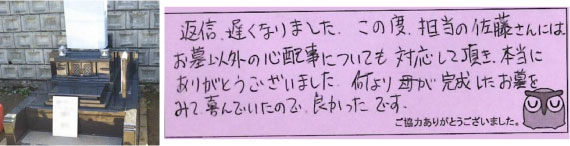 返信、遅くなりました。この度、担当の佐藤さんには、
お墓以外の心配事についても対応して頂き、本当に
ありがとうございました。何より母が完成したお墓を
みて、喜んでいたので、良かったです。
ご協力ありがとうございました。